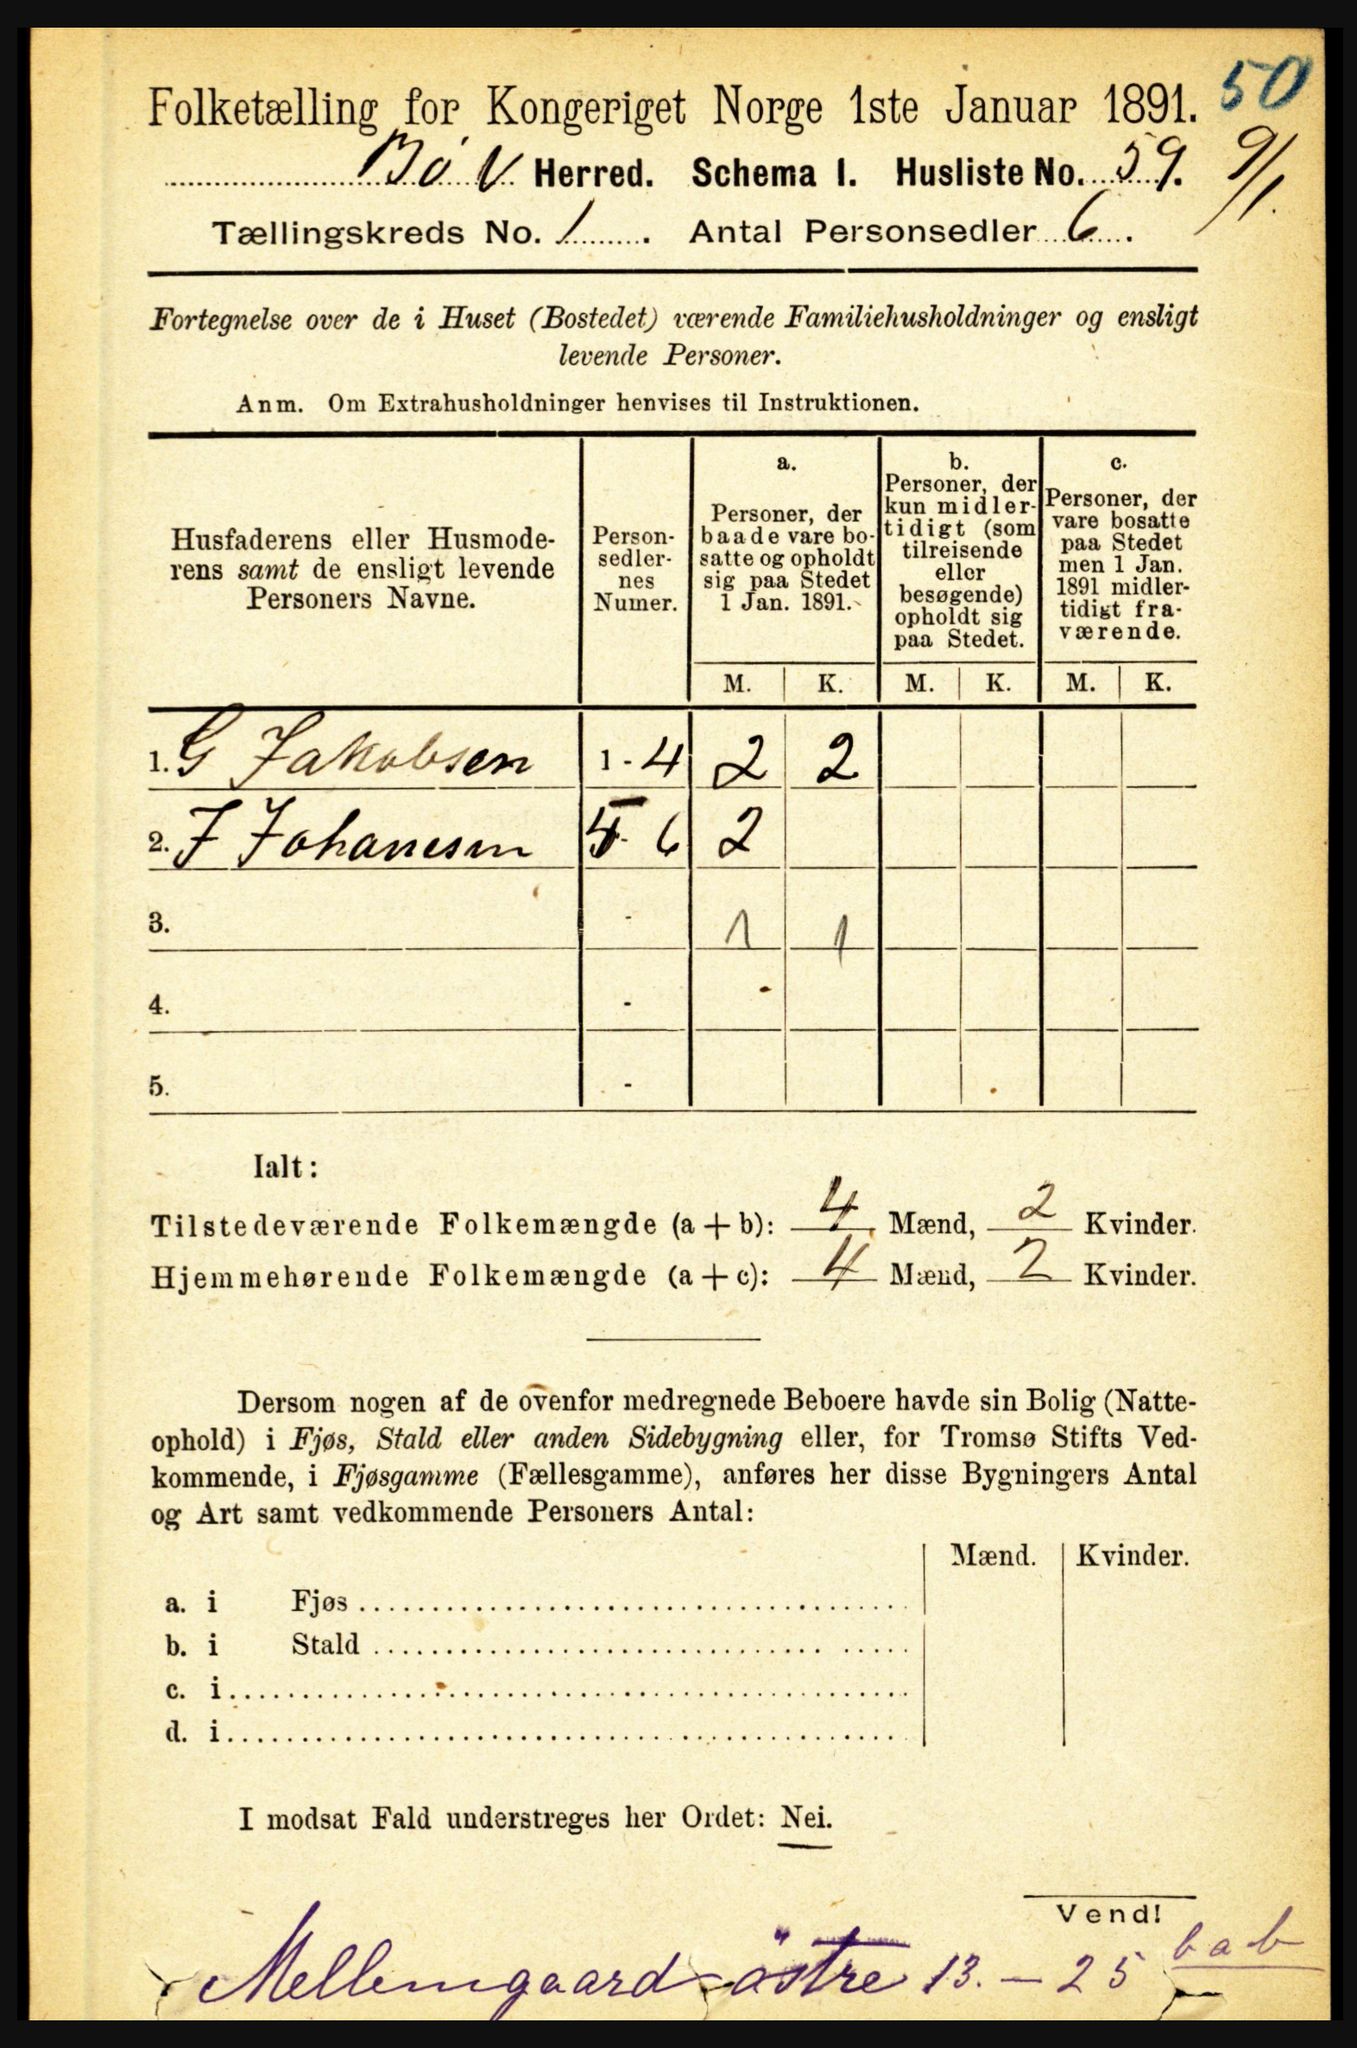 50
Folketælling for Kongeriget Norge 1ste Januar 1891.
9/1.
Bø V Herred. Schema I. Husliste No. 59.
Tællingskreds No. 1. Antal Personsedler 6.
Fortegnelse over de i Huset (Bostedet) værende Familiehusholdninger og ensligt
levende Personer.
Anm. Om Extrahusholdninger henvises til Instruktionen.
Husfaderens eller Husmode-
rens samt de ensligt levende
Personers Navne.
Person-
sedler-
nes
Numer.
a.
Personer, der
baade vare bo-
satte og opholdt
sig paa Stedet
1 Jan. 1891.
b.
Personer, der
kun midler-
tidigt (som
tilreisende
eller
besøgende)
opholdt sig
paa Stedet.
c.
Personer, der
vare bosatte
paa Stedet
men 1 Jan.
1891 midler-
tidigt fra-
værende.
M. K. M. K. M. K.
1. G Jakobsen 1 - 4 2 2
2. J Johanesen 5 - 6 2
3. - 1 1
4. -
5. -
Ialt:
Tilstedeværende Folkemængde (a + b): 4 Mænd, 2 Kvinder.
Hjemmehørende Folkemængde (a + c): 4 Mænd, 2 Kvinder.
Dersom nogen af de ovenfor medregnede Beboere havde sin Bolig (Natte-
ophold) i Fjøs, Stald eller anden Sidebygning eller, for Tromsø Stifts Ved-
kommende, i Fjøsgamme (Fællesgamme), anføres her disse Bygningers Antal
og Art samt vedkommende Personers Antal:
Mænd. Kvinder.
a. i Fjøs
b. i Stald
c. i
d. i
I modsat Fald understreges her Ordet: Nei.
Vend!
Mellemgaard östre 13. - 25 b a b